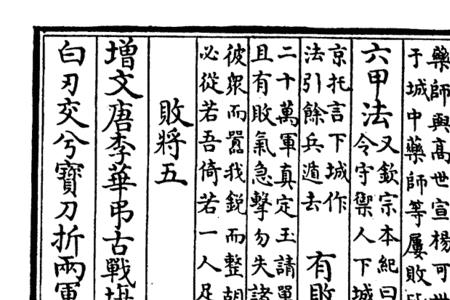 藥師與高世宣楊可世
于城中藥師等屢敗
六甲法
又欽宗本紀曰
令守禦人下城
京托言下城作
法引餘兵遁去
有敗
二十萬軍真定王請單
且有敗氣急擊勿失諸
彼衆而囂我銳而整胡
必從若吾倚若一人足
敗將五
增文唐李華弔古戰場
白刃交兮寶刀折兩軍